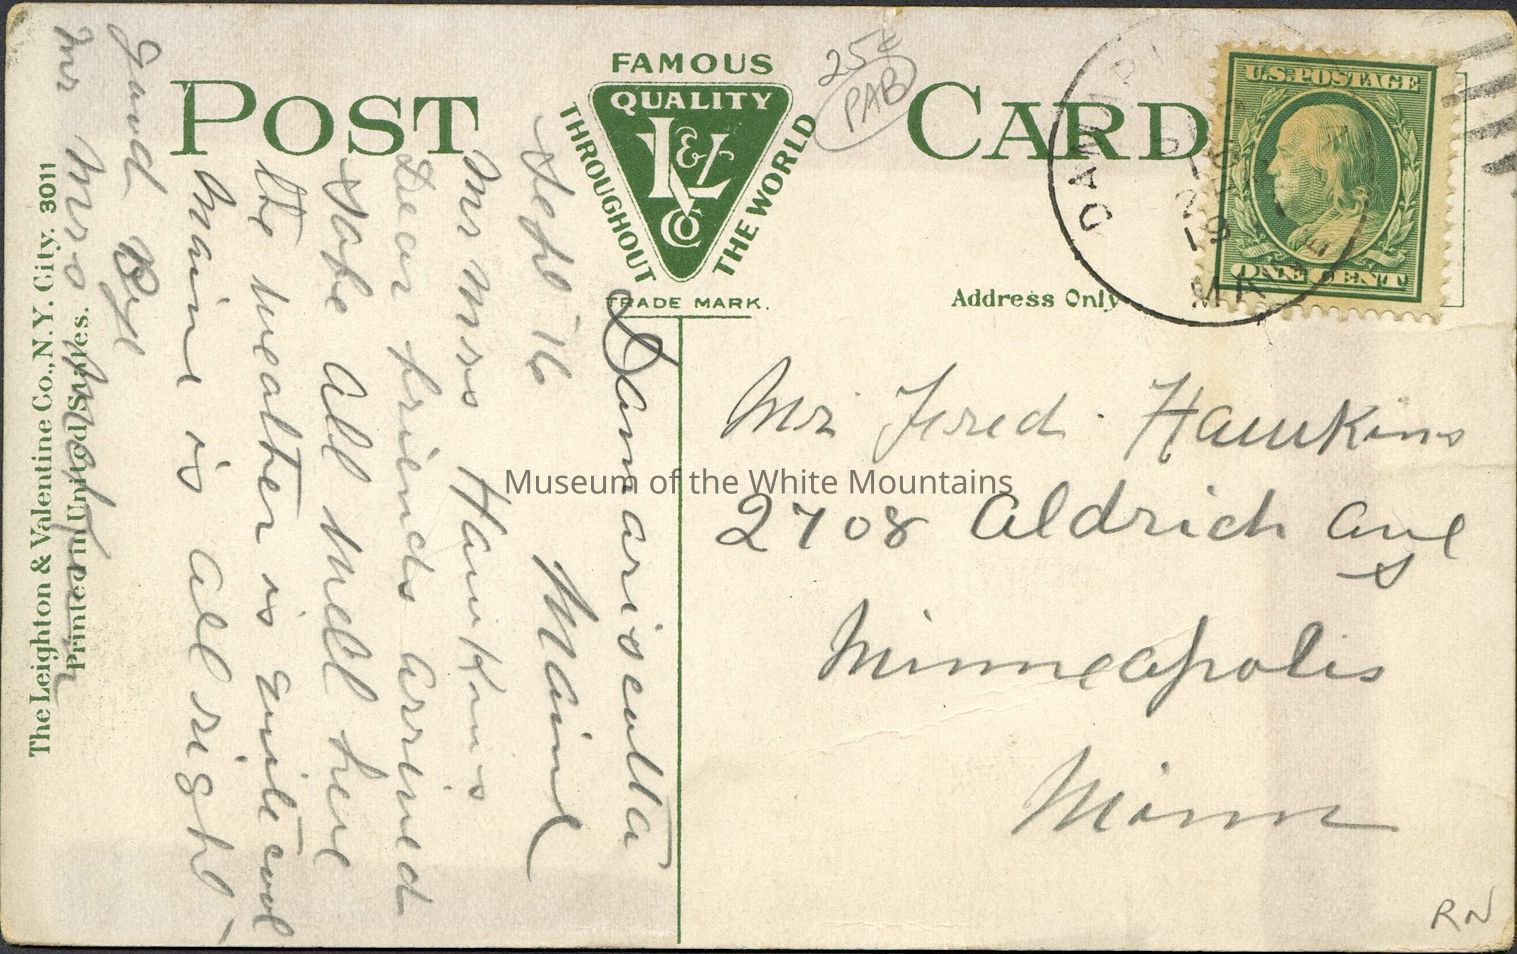 POST CARD
FAMOUS
QUALITY
THROUGHOUT
THE WORLD
L & V
CO
TRADE MARK.
25¢
PAB
U.S. POSTAGE
ONE CENT
DAMARISCOTTA
SEP
16
19
Address Only
Damariscotta
Maine
Sept 16
Mr Mrs Hawkins
Dear friends arrived
Safe all well here
the weather is quite cool
Maine is all right
Good Bye
Mr Mrs
The Leighton & Valentine Co., N.Y. City. 3011
Printed in United States.
Mr Fred Hawkins
2708 Aldrich Ave
S
Minneapolis
Minn
RN
Museum of the White Mountains